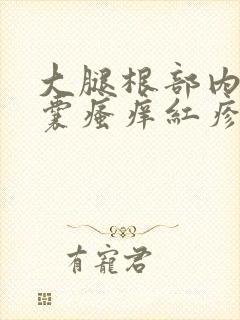 大腿根部内
囊瘙痒红疹
有宠君